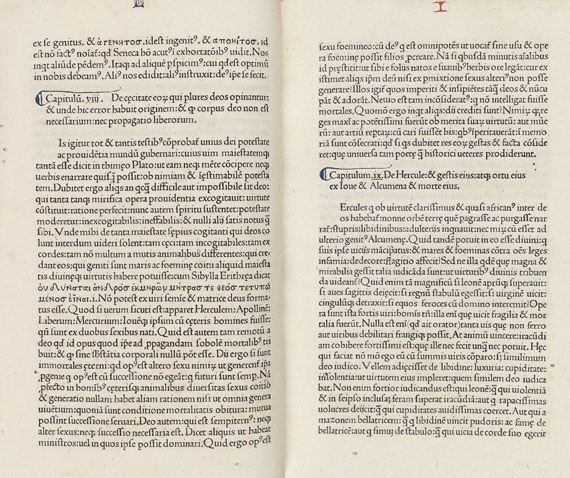 I
ex se genitus. & ἀγένητος. idest ingenitꝰ. & ἀπόητος. id
est nõ factꝰ nosaf: qđ Seneca hõ acutꝰ ĩ exhortatõibꝰ uidit. Nos
inqt aliũde pẽdemꝰ. Itaq; ad aliquẽ ꝑspicimꝰ: cui qđ est optimũ
in nobis debeamꝰ. Aliꝰ nos edidit: aliꝰ instruxit: deꝰ ipe se fecit.
Capitulũ. viii. De cecitate eoꝝ qui plures deos opinantur:
& unde hic error habuit originem: & ꝙ corpus deo non est
necessarium: nec propagatio liberorum.
Is igitur tot & tantis testibꝰ cõprobat unius dei potestate
ac prouidẽtia mundũ gubernari: cuius uim maiestatemq;
tantã esse dicit in thimęo Plato: ut eam neq; mẽte cõcipere neq;
uerbis enarrare quisq̃ possit: ob nimiam & ĩestimabilẽ potesta
tem. Dubitet ergo aliqs an qcq̃ difficile aut impossibile sit deo:
qui tanta tanq; mirifica opera prouidentia excogitauit: uirtute
cõstituit: ratione perfecit: nunc autem spiritu sustentet: potestate
moderetur: inexcogitabilis: ineffabilis: & nulli alii satis notus q̃
sibi. Vnde mihi de tanta maiestate sępius cogitanti qui deos co
lunt interdum uideri solent: tam cęci: tam incogitabiles: tam ex
cordes: tam nõ multum a mutis animalibus differentes: qui cre
dant eos: qui geniti sunt maris ac foeminę coitu aliquid maiesta
tis diuinęq; uirtutis habere potuisse: cum Sibylla Erithręa dicat
tus esse. Quod si uerum sicuti est: apparet Herculem: Apollinẽ:
Liberum: Mercurium: Iouẽq; ipsum cũ ceteris homines fuisse:
qñ sunt ex duobus sexibus nati. Quid est autem tam remotũ a
deo qđ id opus quod ipe ad ꝓpagandam sobolẽ mortalibꝰ tri
buit: & ꝙ sine sb̃stãtia corporali nullũ põt esse. Dii ergo si sunt
immortales ęterni: qd opꝰ est altero sexu: nimiꝝ ut generent: ipa
ꝓgenie q opꝰ est: cũ successiõe nõ egeãt: q̃ futuri sunt semp. Nã
ꝓfecto in hoĩbꝰ ceterisq; animalibus diuersitas sexus coitio
& generatio nullam habet aliam rationem nisi ut omnia genera
uiuẽtium: quoniã sunt conditione mortalitatis obitura: mutua
possint successiõe seruari. Deo autem: qui est sempiternꝰ: neq;
alter sexus: neq; successio necessaria est. Dicet aliquis ut habeat
ministros: uel in quos ipse possit dominari. Quid ergo opꝰ est
sexu foemineo: cũ deꝰ q est omnipotẽs ut uocat sine usu & ope
ra foeminę possit filios ꝓcreare. Nã si qbusdã minutis aĩalibus
id pręstitit: ut sibi e foliis natos e suauibꝰ herbis ore legãt: cur ex
istimet aliqs ipm deũ nisi ex pmixtione sexus alterꝰ non posse
generare: Illos igit quos imperiti & insipiẽtes tãq̃ deos & nũcu
pãt & adorãt. Nemo est tam incõsideratꝰ: q nõ intelligat fuisse
mortales. Quomõ ergo inqt aliqs: dii crediti sunt: Nimiꝝ qre re
ges maxĩ ac potẽtissimi fuerũt ob merita suaꝝ uirtutũ: aut mũ
rũ: aut artiũ reptaꝝ: cũ cari fuissẽt hiis: qbꝰ ĩperitauerãt: ĩ memo
riã sunt cõsecrati: qđ si qs dubitet res eoꝝ gestas & facta cõside
ret: que uniuersa tam poetę q̃ historici ueteres prodiderunt.
Capitulum. ix. De Hercule: & gestis eius: atq; ortu eius
ex Ioue & Alcumena & morte eius.
Ercules q ob uirtutẽ clarissimus & quasi africanꝰ inter de
os habebat: nonne orbẽ terrę quẽ pagrasse ac purgasse nar
rat: stupris: libidinibus: adulteriis inqnauit: nec miꝝ cũ esset ad
ulterio genitꝰ Alcumenę. Quid tandẽ potuit in eo esse diuini: q
suis ipse uiciis mãcipatus: & mares & foeminas cõtra oẽs leges
infamia: dedecore: flagitio affecit: Sed ne illa qdẽ que magna &
mirabilia gessit talia iudicãda sunt: ut uirtutibꝰ diuinis tribuen
da uideant: Quid enim tã magnificũ si leonẽ aprũq; superauit:
si aues sagittis deiecit: si regiũ stabulũ egessit: si uirginẽ uicit:
cingulũq; detraxit: si equos feroces cũ domino interemit: Ope
ra sunt ista fortis uiri: hominis tñ: illa eni que uicit fragilia & mor
talia fuerũt. Nulla est eni (qđ ait orator) tanta uis que non ferro
aut uiribus debilitari frangiq; possit. At animũ uincere: iracũdi
am cohibere fortissimi est: que ille nec fecit unq̃ nec potuit. Hec
qui faciat nõ mõ ego eũ cũ summis uiris cõparo: sed simillimum
deo iudico. Vellem adiecisset de libidine: luxuria: cupiditate:
insolentia: ut uirtutem eius impleret: quem similem deo iudica
bat. Non enim fortior iudicandus est: qui leonẽ: q̃ qui uiolentiã
& in seipso inclusaz feram superat iracũdiã: aut q rapacissimas
uolucres deiicit: q̃ qui cupiditates auidissimas coercet. Aut qui a
mazonem bellatricem: q̃ q libidinẽ uincit pudoris: ac famę de
bellatricẽ: aut q fimuʒ de stabulo: q̃ qui uicia de corde suo egerit